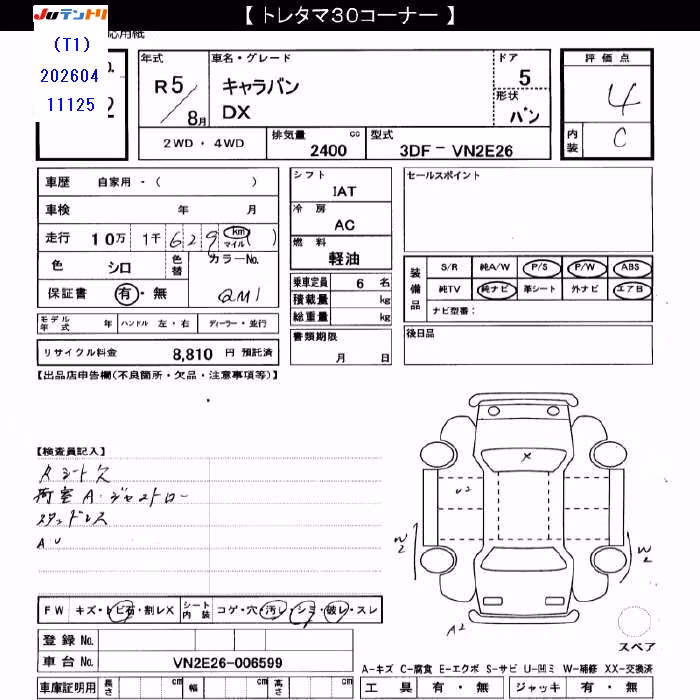 【 トレタマ３０コーナー 】
JUテントリ
応用紙
(T1)
202604
11125
年式 R 5 / 8月
車名・グレード キャラバン DX
ドア 5
形状 バン
評価点 4
内装 C
2WD ・ 4WD
排気量 cc 2400
型式 3DF－VN2E26
車歴 自家用 ・ ( )
車検 年 月
走行 10万 1千 6 2 9 km マイル ( )
色 シロ 色替 カラーNo. QM1
保証書 有 ・ 無
シフト IAT
冷房 AC
燃料 軽油
乗車定員 6 名
積載量 kg
総重量 kg
書類期限 月 日
セールスポイント
装備品 S/R 純A/W P/S P/W ABS
純TV 純ナビ 革シート 外ナビ エアB
ナビ型番：
後日品
モデル年式 年 ハンドル 左・右 ディーラー・並行
リサイクル料金 8,810 円 預託済
【出品店申告欄(不良箇所・欠品・注意事項等)】
【検査員記入】
荷室 A
スタッドレス
A U
X
U2
W2
W2
A2
FW キズ・トビ石・割レX シート内装 コゲ・穴・汚レ・シミ・破レ・スレ
登録 No.
車台 No. VN2E26-006599
スペア
A-キズ C-腐食 E-エクボ S-サビ U-凹ミ W-補修 XX-交換済
車庫証明用 長さ cm 幅 cm 高さ cm
工具 有 ・ 無 ジャッキ 有 ・ 無